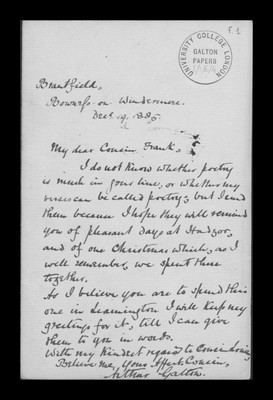 f. 1
UNIVERSITY COLLEGE LONDON
GALTON
PAPERS
Brantfield,
Bowness-on-Windermere.
Decr 19. 1885
My dear Cousin Frank,
I do not know whether poetry
is much in your line, or whether my
verses can be called poetry; but I send
them because I hope they will remind
you of pleasant days at
and of one Christmas which, as I
well remember, we spent there
together.
As I believe you are to spend this
one in Leamington I will keep my
greetings for it, till I can give
them to you in words.
With my kindest regards to Cousin Louisa,
Believe me, Your affect. Cousin,
Arthur Galton.